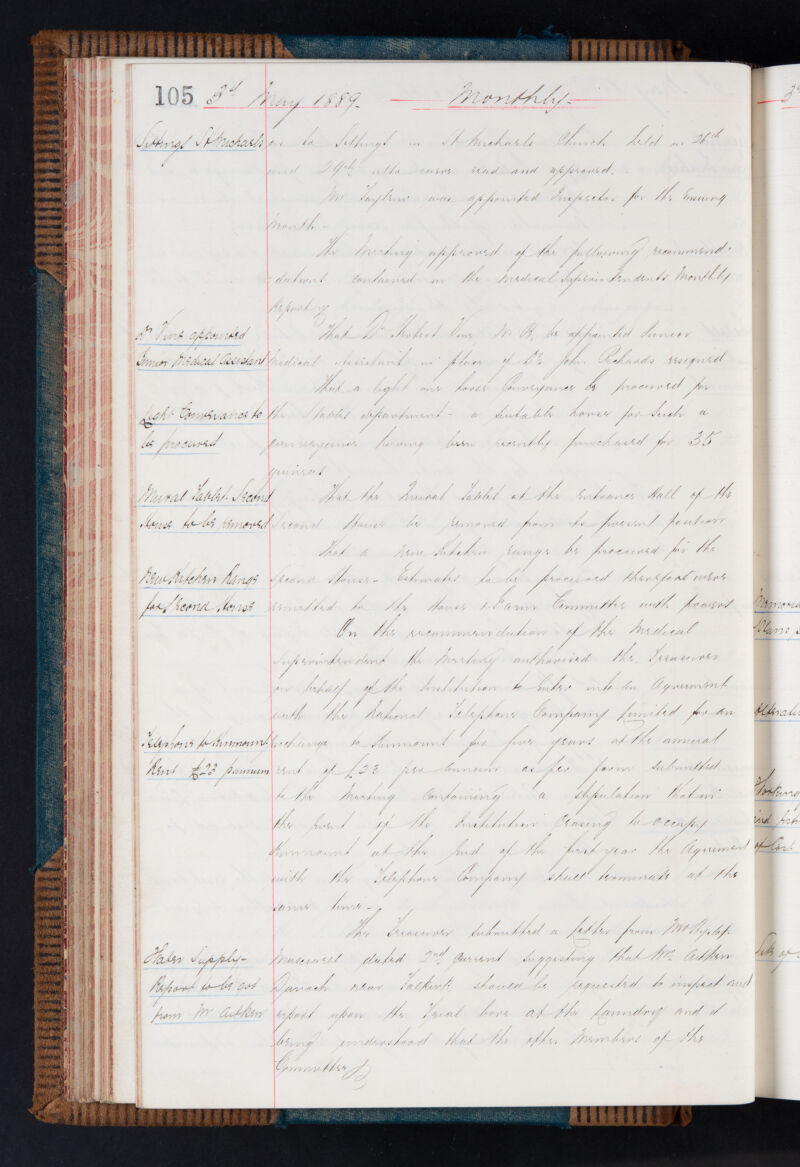 105 3d May 1889. Monthly.
Sittings St Michaels
as to Sittings in St Michaels Church held on 26th
and 29th ulto were read and approved.
Mr was appointed Inspector for the Ensuing
Month.
The Meeting approved of the following recommend-
-dations contained in the Medical Superintendents Monthly
Report
Dr appointed
Senior Medical Assistant
That Dr M.B. be appointed Senior
Medical Assistant in place of Dr John resigned
That a light one horse Conveyance be procured for
Light Conveyance to
be procured
the Stables department - a suitable horse for such a
conveyance having been recently purchased for 35
guineas
Mural Tablet. Second
House to be removed
That the Mural Tablet at the Entrance Hall of the
Second House be removed from its present position
That a new Kitchen range be procured for the
New Kitchen Range
for Second House
Second House - Estimates to be procured therefor were
remitted to the House & Farm Committee with powers
On the recommendation of the Medical
Superintendent the Meeting authorised the Treasurer
on behalf of the Institution to Enter into an Agreement
with the National Telephone Company Limited for an
Telephone to Kinmount
Rent £23 p annum
Exchange to Kinmount for five years at the annual
rent of £23 per annum as per form submitted
to the Meeting Containing a stipulation that in
the Event of the Institution Ceasing to occupy
Kinmount at the End of the first year the Agreement
with the Telephone Company shall terminate at the
same time.
The Treasurer submitted a letter from
Water Supply -
Report to be got
from Mr Aitken
dated 2nd Current Suggesting that Mr Aitken
near Falkirk should be requested to inspect and
report upon the Trial bore at the Laundry and it
being understood that the other Members of the
Committee